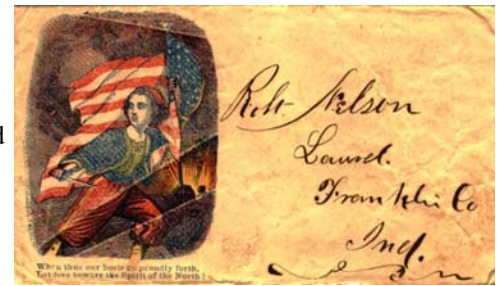 d
Robt Nelson
Laurel.
Franklin Co
Ind.
When thus our hosts go proudly forth,
Let foes beware the Spirit of the North!